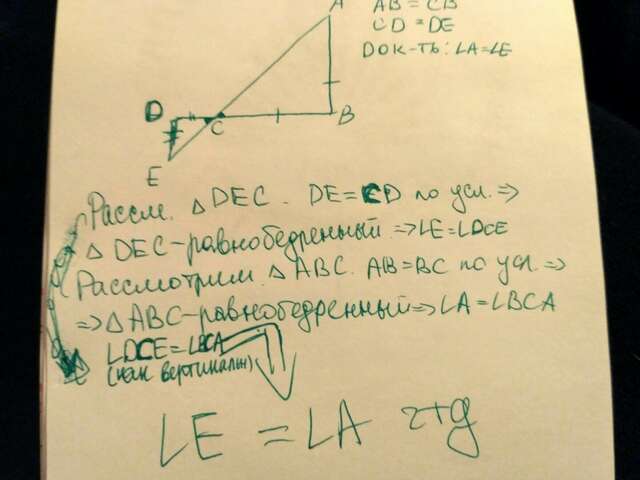 A
AB = CB
CD = DE
ДОК-ТЬ: ∠A=∠E
D
C
B
E
Рассм. △ DEC. DE=CD по усл. ⇒
△ DEC-равнобедренный ⇒∠E=∠DCE
Рассмотрим △ ABC. AB=BC по усл ⇒
⇒△ ABC-равнобедренный⇒∠A=∠BCA
∠DCE=∠BCA
(как вертикальн)
∠E = ∠A чтд